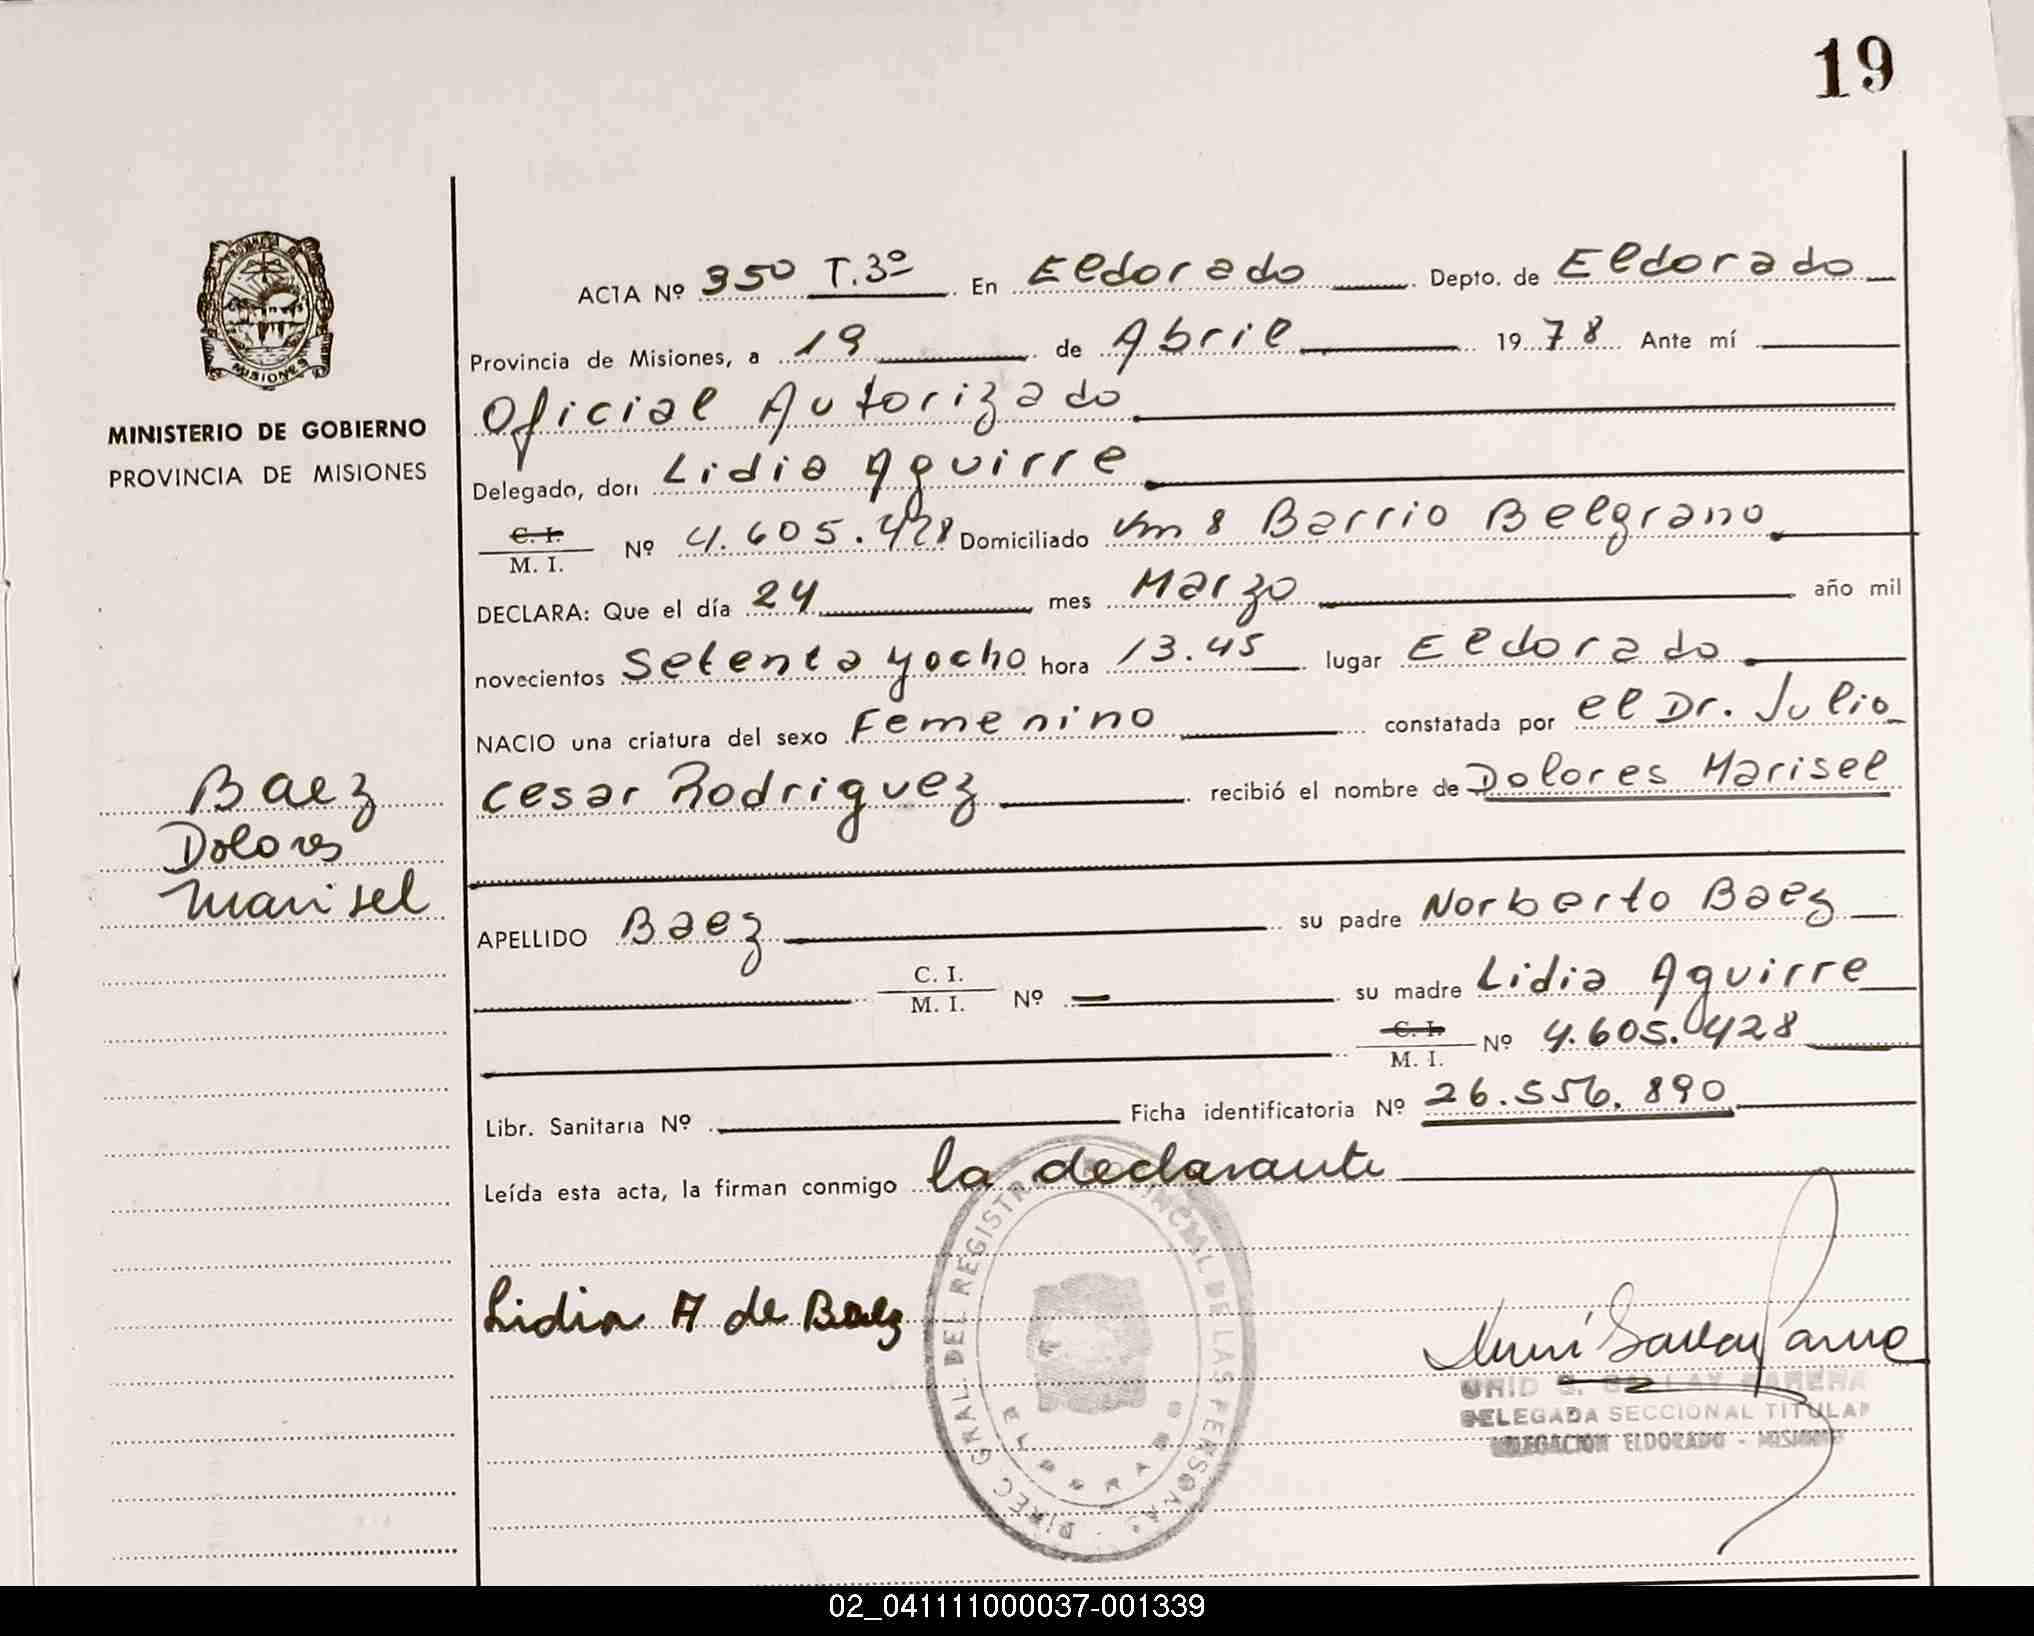 19
ACTA Nº 350 T.3º En Eldorado Depto. de Eldorado
Provincia de Misiones, a 19 de Abril 1978 Ante mí
Oficial Autorizado
Delegado, don Lidia Aguirre
C. I.
M. I. Nº 4.605.428 Domiciliado Km 8 Barrio Belgrano
DECLARA: Que el día 24 mes Marzo año mil
novecientos Setenta y ocho hora 13.45 lugar Eldorado
NACIO una criatura del sexo Femenino constatada por el Dr. Julio
Cesar Rodriguez recibió el nombre de Dolores Marisel
APELLIDO Baez su padre Norberto Baez
C. I.
M. I. Nº — su madre Lidia Aguirre
C. I.
M. I. Nº 4.605.428
Libr. Sanitaria Nº Ficha identificatoria Nº 26.556.890
Leída esta acta, la firman conmigo la declarante
Lidia A de Baez
DELEGADA SECCIONAL TITULAR
DELEGACION ELDORADO - MISIONES
DIREC. GRAL. DEL REGISTRO PROVINCIAL DE LAS PERSONAS
ELDORADO
MISIONES
MINISTERIO DE GOBIERNO
PROVINCIA DE MISIONES
Baez
Dolores
Marisel
02_041111000037-001339